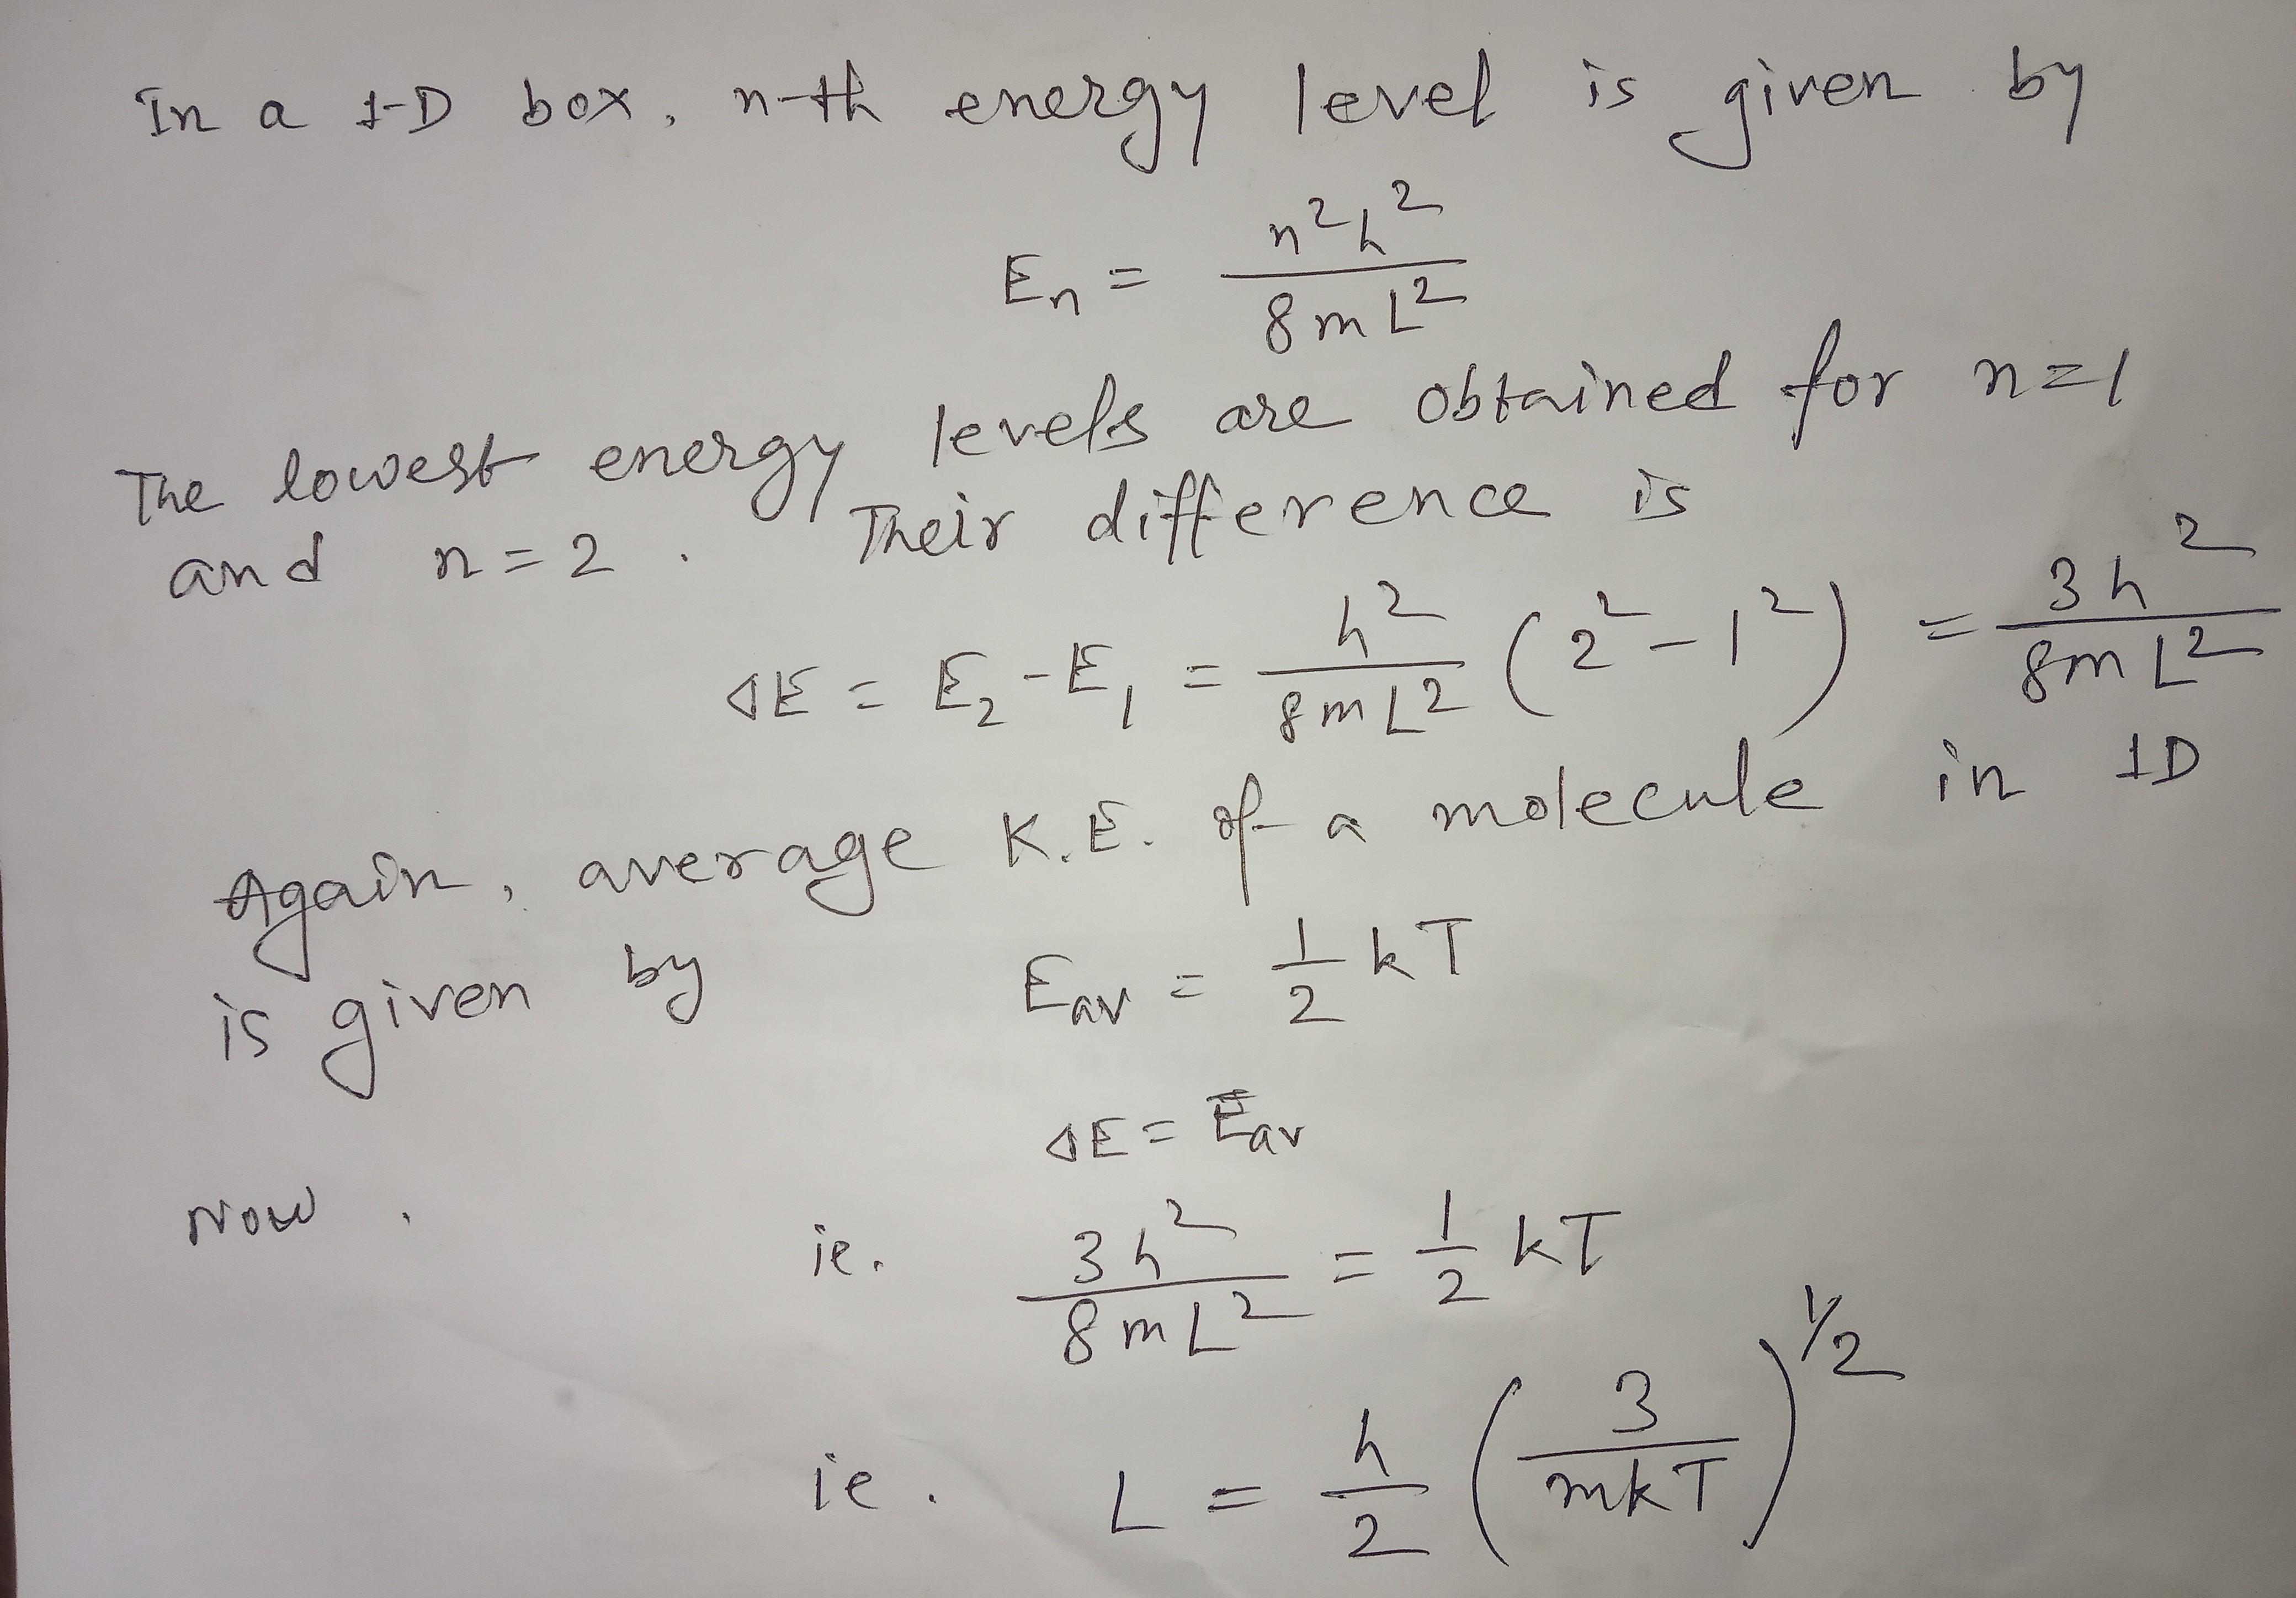 In a 1-D box, n-th energy level is given by
E_n = n²h² / 8mL²
The lowest energy levels are obtained for n=1
and n=2. Their difference is
ΔE = E₂-E₁ = h²/8mL² (2²-1²) = 3h²/8mL²
Again, average K.E. of a molecule in 1D
is given by E_av = 1/2 kT
ΔE = E_av
Now,
ie. 3h²/8mL² = 1/2 kT
ie. L = h/2 (3/mkT)^1/2